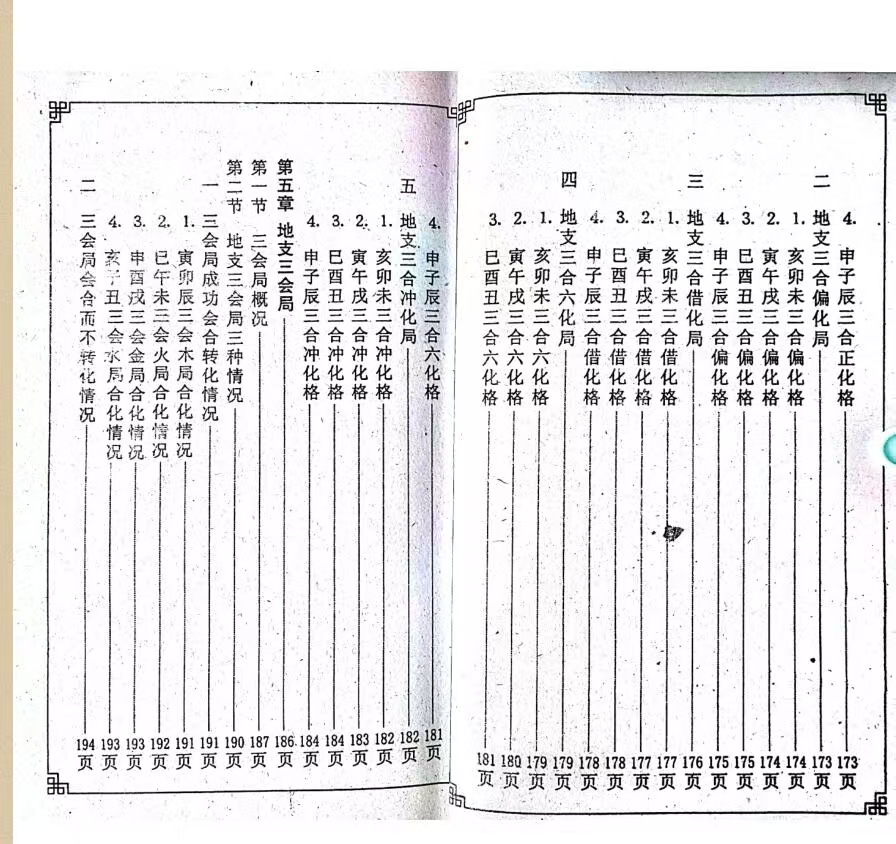 4. 申子辰三合正化格 173页
二 地支三合偏化局 173页
1. 亥卯未三合偏化格 174页
2. 寅午戌三合偏化格 174页
3. 巳酉丑三合偏化格 175页
4. 申子辰三合偏化格 175页
三 地支三合借化局 176页
1. 亥卯未三合借化格 177页
2. 寅午戌三合借化格 177页
3. 巳酉丑三合借化格 178页
4. 申子辰三合借化格 178页
四 地支三合六化局 179页
1. 亥卯未三合六化格 179页
2. 寅午戌三合六化格 180页
3. 巳酉丑三合六化格 181页
4. 申子辰三合六化格 181页
五 地支三合冲化局 182页
1. 亥卯未三合冲化格 182页
2. 寅午戌三合冲化格 183页
3. 巳酉丑三合冲化格 184页
4. 申子辰三合冲化格 184页
第五章 地支三会局 186页
第一节 三会局概况 187页
第二节 地支三会局三种情况 190页
一 三会局成功会合转化情况 191页
1. 寅卯辰三会木局合化情况 191页
2. 巳午未三会火局合化情况 192页
3. 申酉戌三会金局合化情况 193页
4. 亥子丑三会水局合化情况 193页
二 三会局会合而不转化情况 194页